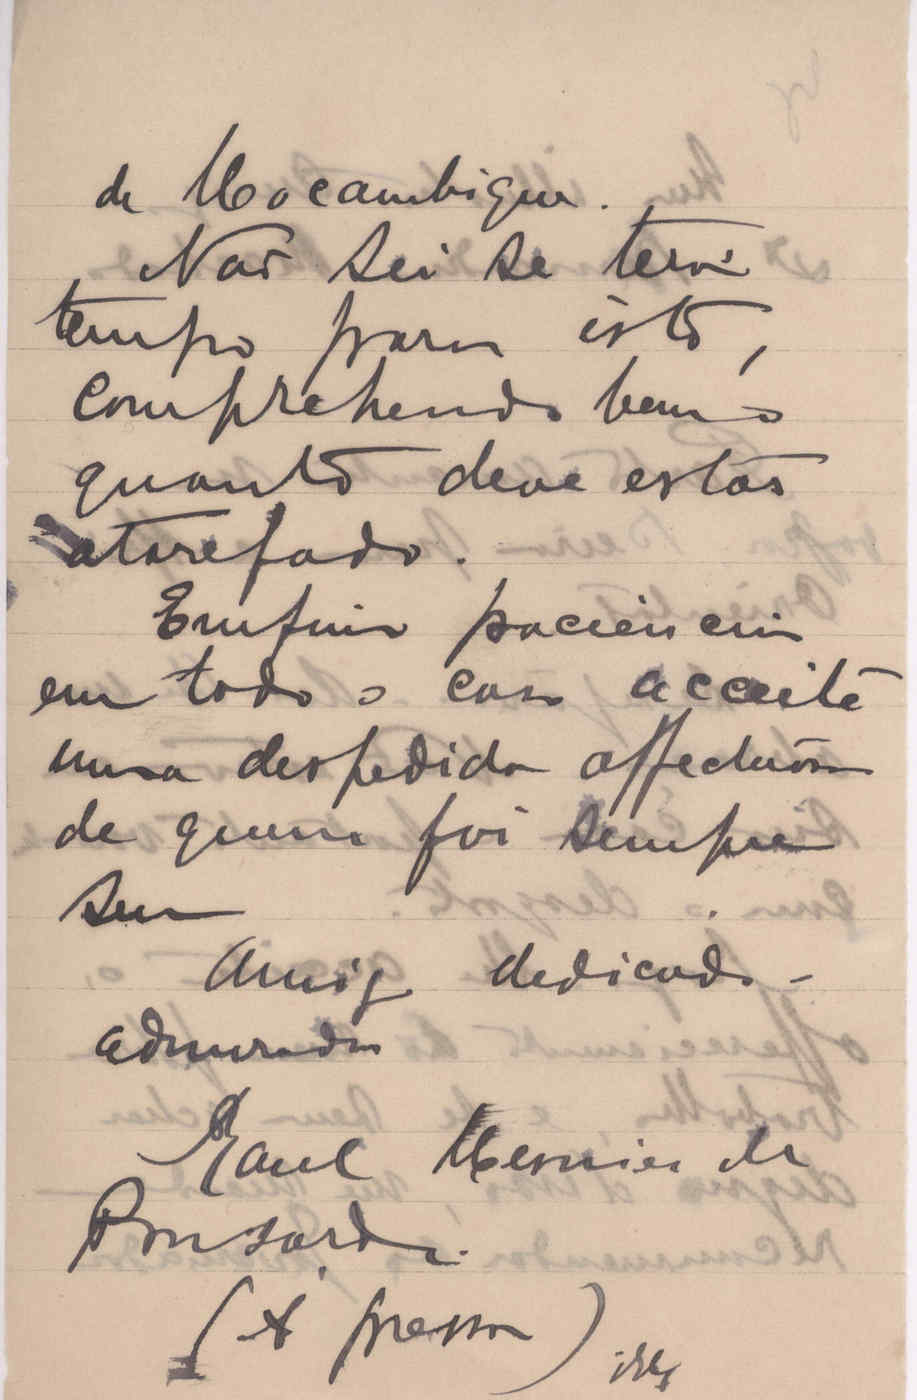 de Moçambique.
Não sei se terá
tempo para isto,
comprehendo bem o
quanto deve estar
atarefado.
Emfim paciencia
em todo o caso acceite
uma despedida affectuosa
de quem foi sempre
seu
Amigo dedicado -
admirador
Raul Mesnier de
Ponsard.
(A' pressa)